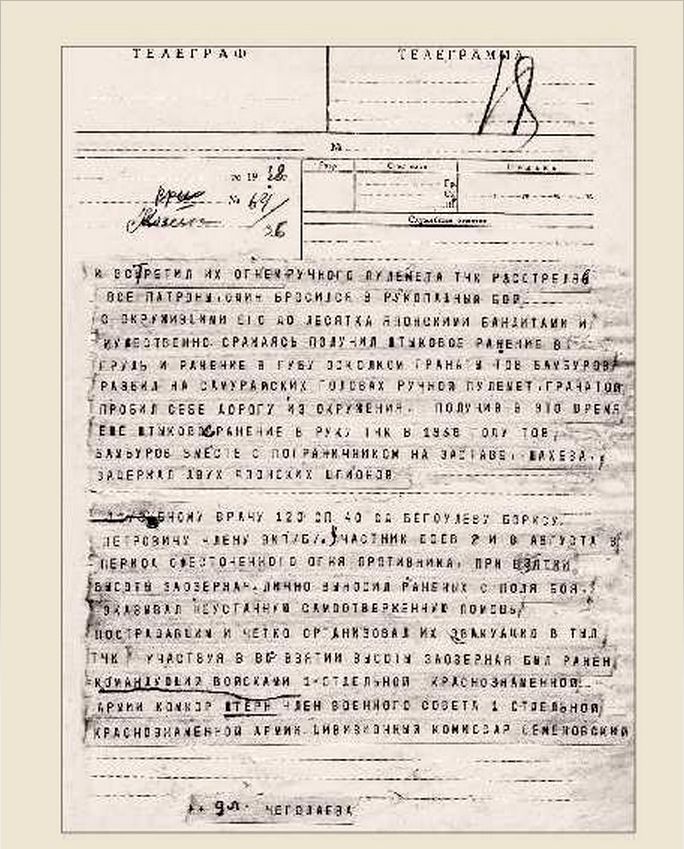 ТЕЛЕГРАФ ТЕЛЕГРАММА
18
№
го 19 38 г.
№ 64/36
Служебные отметки
И ВСТРЕТИЛ ИХ ОГНЕМ РУЧНОГО ПУЛЕМЕТА ТЧК РАССТРЕЛЯВ
ВСЕ ПАТРОНЫ, ОДИН БРОСИЛСЯ В РУКОПАШНЫЙ БОЙ
С ОКРУЖИВШИМИ ЕГО ДО ДЕСЯТКА ЯПОНСКИМИ БАНДИТАМИ И
МУЖЕСТВЕННО СРАЖАЯСЬ ПОЛУЧИЛ ШТЫКОВОЕ РАНЕНИЕ В
ГРУДЬ И РАНЕНИЕ В ГУБУ ОСКОЛКОМ ГРАНАТЫ ТОВ БАМБУРОВ
РАЗБИЛ НА САМУРАЙСКИХ ГОЛОВАХ РУЧНОЙ ПУЛЕМЕТ, ГРАНАТОЙ
ПРОБИЛ СЕБЕ ДОРОГУ ИЗ ОКРУЖЕНИЯ. ПОЛУЧИВ В ЭТО ВРЕМЯ
ЕЩЕ ШТЫКОВОЕ РАНЕНИЕ В РУКУ ТЧК В 1936 ГОДУ ТОВ.
БАМБУРОВ ВМЕСТЕ С ПОГРАНИЧНИКОМ НА ЗАСТАВЕ,
ЗАДЕРЖАЛ ДВУХ ЯПОНСКИХ ШПИОНОВ
ВРАЧУ 120 СП 40 СД БЕГОУЛЕВУ БОРИСУ
ПЕТРОВИЧУ ЧЛЕНУ ВКП/Б/. УЧАСТНИК БОЕВ 2 И 6 АВГУСТА В
ПЕРИОД ОЖЕСТОЧЕННОГО ОГНЯ ПРОТИВНИКА, ПРИ ВЗЯТИИ
ВЫСОТЫ ЗАОЗЕРНАЯ, ЛИЧНО ВЫНОСИЛ РАНЕНЫХ С ПОЛЯ БОЯ,
ОКАЗЫВАЛ НЕУСТАННУЮ САМООТВЕРЖЕННУЮ ПОМОЩЬ
ПОСТРАДАВШИМ И ЧЕТКО ОРГАНИЗОВАЛ ИХ ЭВАКУАЦИЮ В ТЫЛ
ТЧК УЧАСТВУЯ В ВО ВЗЯТИИ ВЫСОТЫ ЗАОЗЕРНАЯ БЫЛ РАНЕН
КОМАНДУЮЩИЙ ВОЙСКАМИ 1-ОТДЕЛЬНОЙ КРАСНОЗНАМЕННОЙ
АРМИИ КОМКОР ШТЕРН ЧЛЕН ВОЕННОГО СОВЕТА 1 ОТДЕЛЬНОЙ
КРАСНОЗНАМЕННОЙ АРМИИ ДИВИЗИОННЫЙ КОМИССАР СЕМЕНОВСКИЙ
9л. ЧЕГОДАЕВА